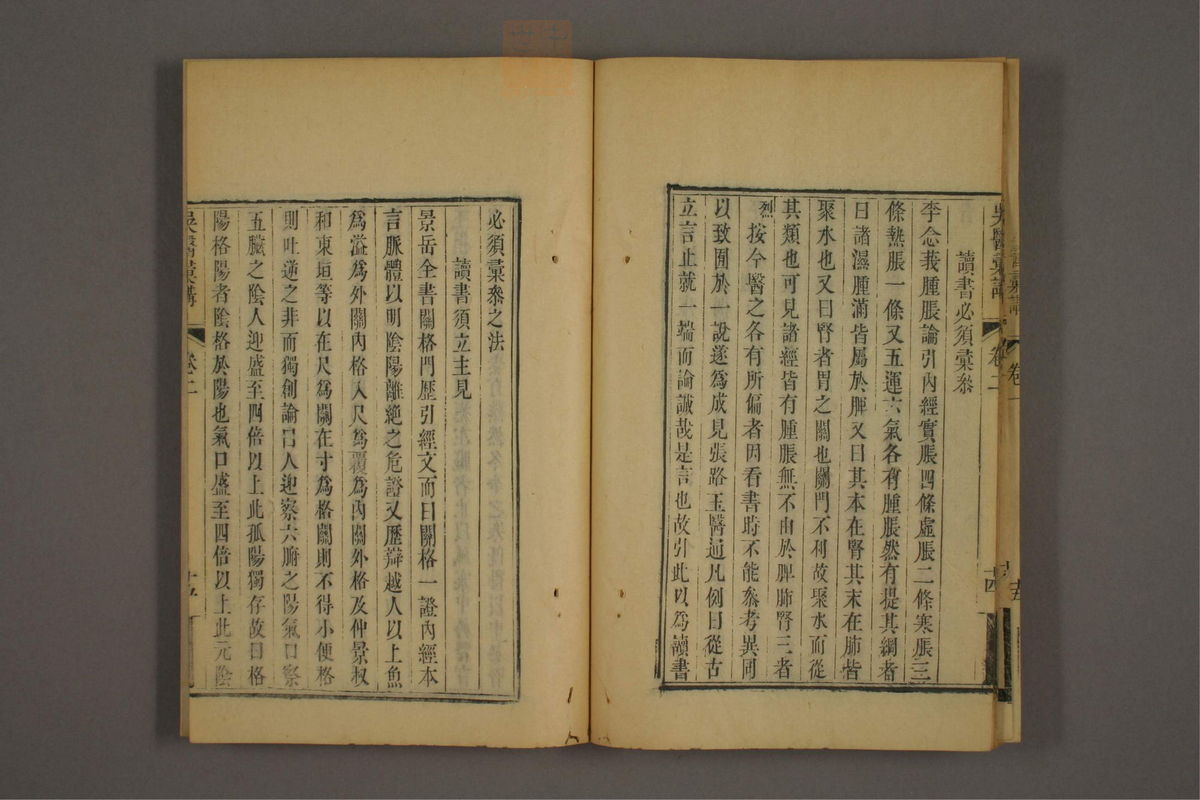 讀書必須彙叅
李念莪腫脹論引內經實脹四條虛脹二條寒脹三
條熱脹一條又五運六氣各有腫脹然有提其綱者
曰諸濕腫滿皆屬於脾又曰其本在腎其末在肺皆
聚水也又曰腎者胃之關也關門不利故聚水而從
其類也可見諸經皆有腫脹無不由於脾肺腎三者
烈
按今醫之各有所偏者因看書時不能叅考異同
以致囿於一說遂爲成見張路玉醫通凡例曰從古
立言止就一端而論誠哉是言也故引此以爲讀書
吳醫彙講
卷二
十四
必須彙叅之法
讀書須立主見
景岳全書關格門歷引經文而曰關格一證內經本
言脈體以明陰陽離絶之危證又歷辯越人以上魚
爲溢爲外關內格入尺爲覆爲內關外格及仲景叔
和東垣等以在尺爲關在寸爲格關則不得小便格
則吐逆之非而獨創論曰人迎察六腑之陽氣口察
五臟之陰人迎盛至四倍以上此孤陽獨存故曰格
陽格陽者陰格於陽也氣口盛至四倍以上此元陰
吳醫彙講
卷二
十五